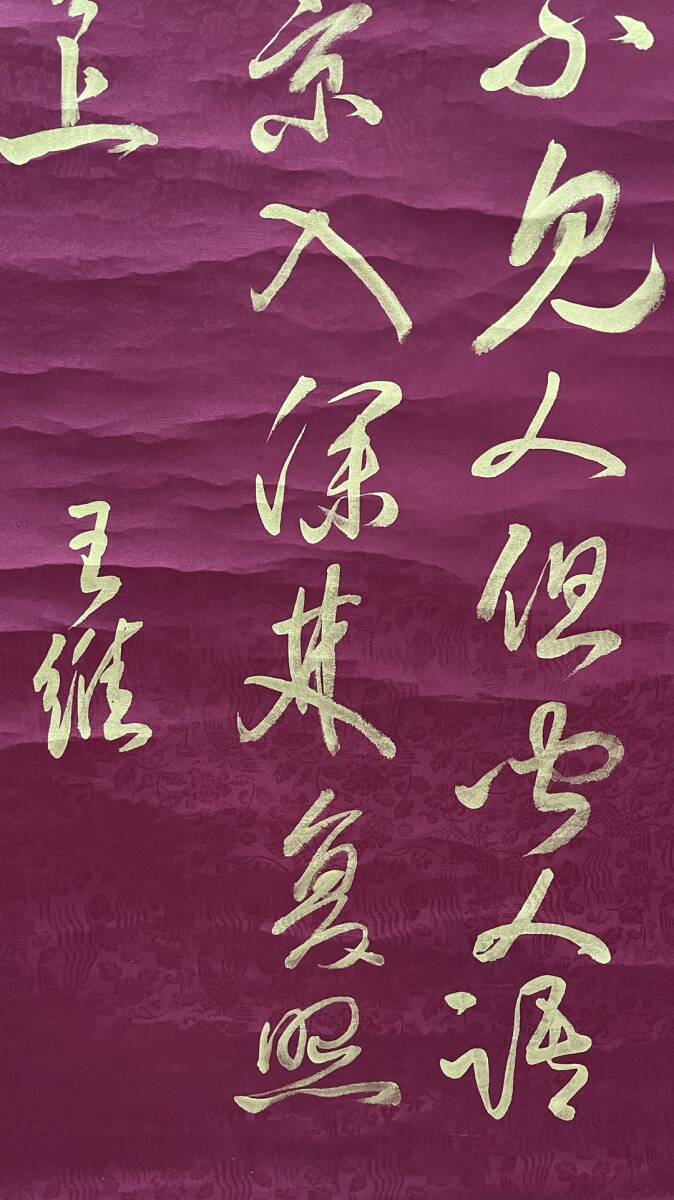 不见人但闻人语
景入深林复照
上
王维